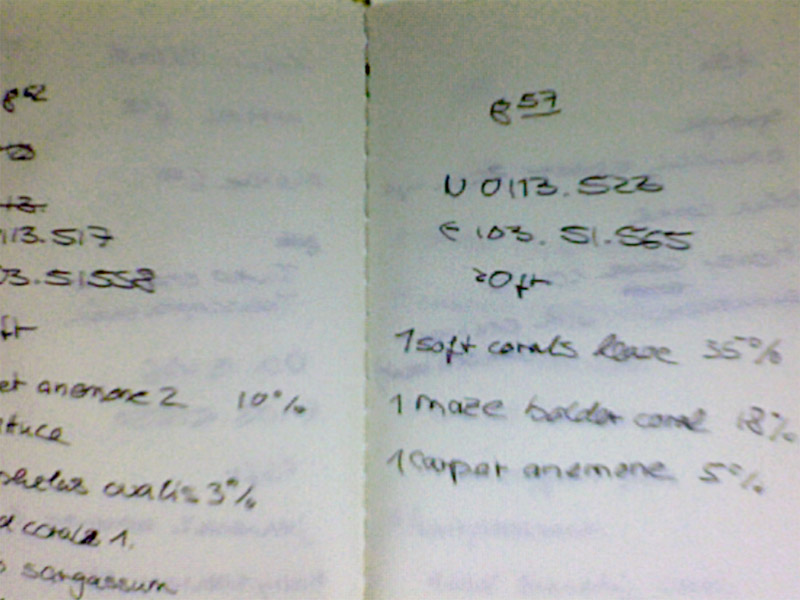 113.517
03.51.558
ft
et anemone 2 10%
tuca
ovalis 3%
d corals 1.
sargassum
g 57
N 0113.523
E 103.51.565
20ft
1 soft corals leave 35%
1 maze bolder coral 18%
1 Carpet anemone 5%